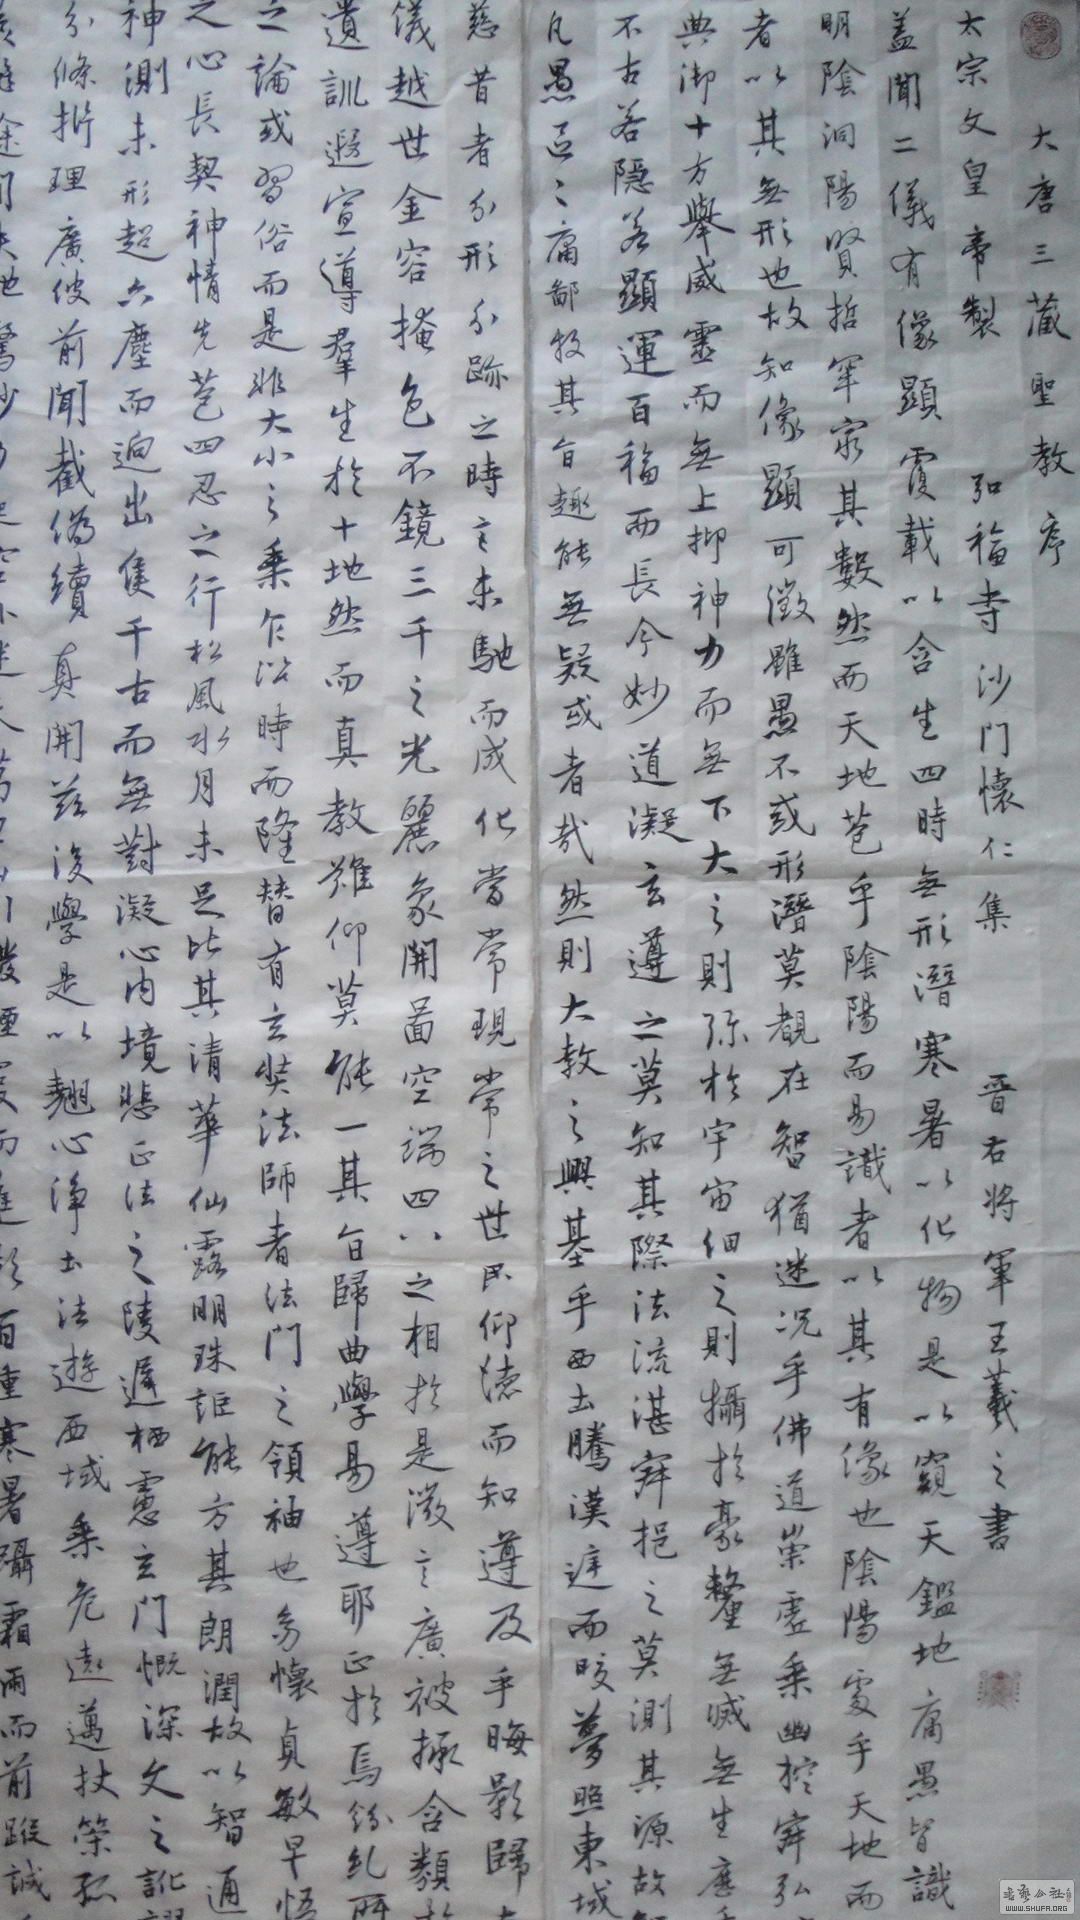 大唐三藏聖教序
太宗文皇帝製 弘福寺沙門懷仁集 晉右將軍王羲之書
蓋聞二儀有像顯覆載以含生四時無形潛寒暑以化物是以窺天鑑地庸愚皆識
明陰洞陽賢哲罕窮其數然而天地苞乎陰陽而易識者以其有像也陰陽處乎天地而
者以其無形也故知像顯可徵雖愚不或形潛莫覩在智猶迷況乎佛道崇虛乘幽控寂弘
典御十方舉威靈而無上抑神力而無下大之則彌於宇宙細之則攝於豪釐無滅無生歷千
不古若隱若顯運百福而長今妙道凝玄遵之莫知其際法流湛寂挹之莫測其源故
凡愚區之庸鄙投其旨趣能無疑或者哉然則大教之興基乎西土騰漢庭而皎夢照東域
慈昔者分形分跡之時言未馳而成化當常現常之世民仰德而知遵及乎晦影歸
儀越世金容掩色不鏡三千之光麗象開圖空端四八之相於是微言廣被拯含類
遺訓遐宣導群生於十地然而真教難仰莫能一其旨歸曲學易遵耶正於焉紛糺所
之論或習俗而是非大小之乘乍沿時而隆替有玄奘法師者法門之領袖也幼懷貞敏早悟
之心長契神情先苞四忍之行松風水月未足比其清華仙露明珠詎能方其朗潤故以智通
神測未形超六塵而迥出隻千古而無對凝心內境悲正法之陵遲栖慮玄門慨深文之訛
分條析理廣彼前聞截偽續真開茲後學是以翹心淨土法遊西域乘危遠邁杖策孤
途間失地驚沙夕起空外迷天萬里山川撥煙霞而進影百重寒暑躡霜雨而前蹤誠
書藝公社
WWW.SHUFA.ORG